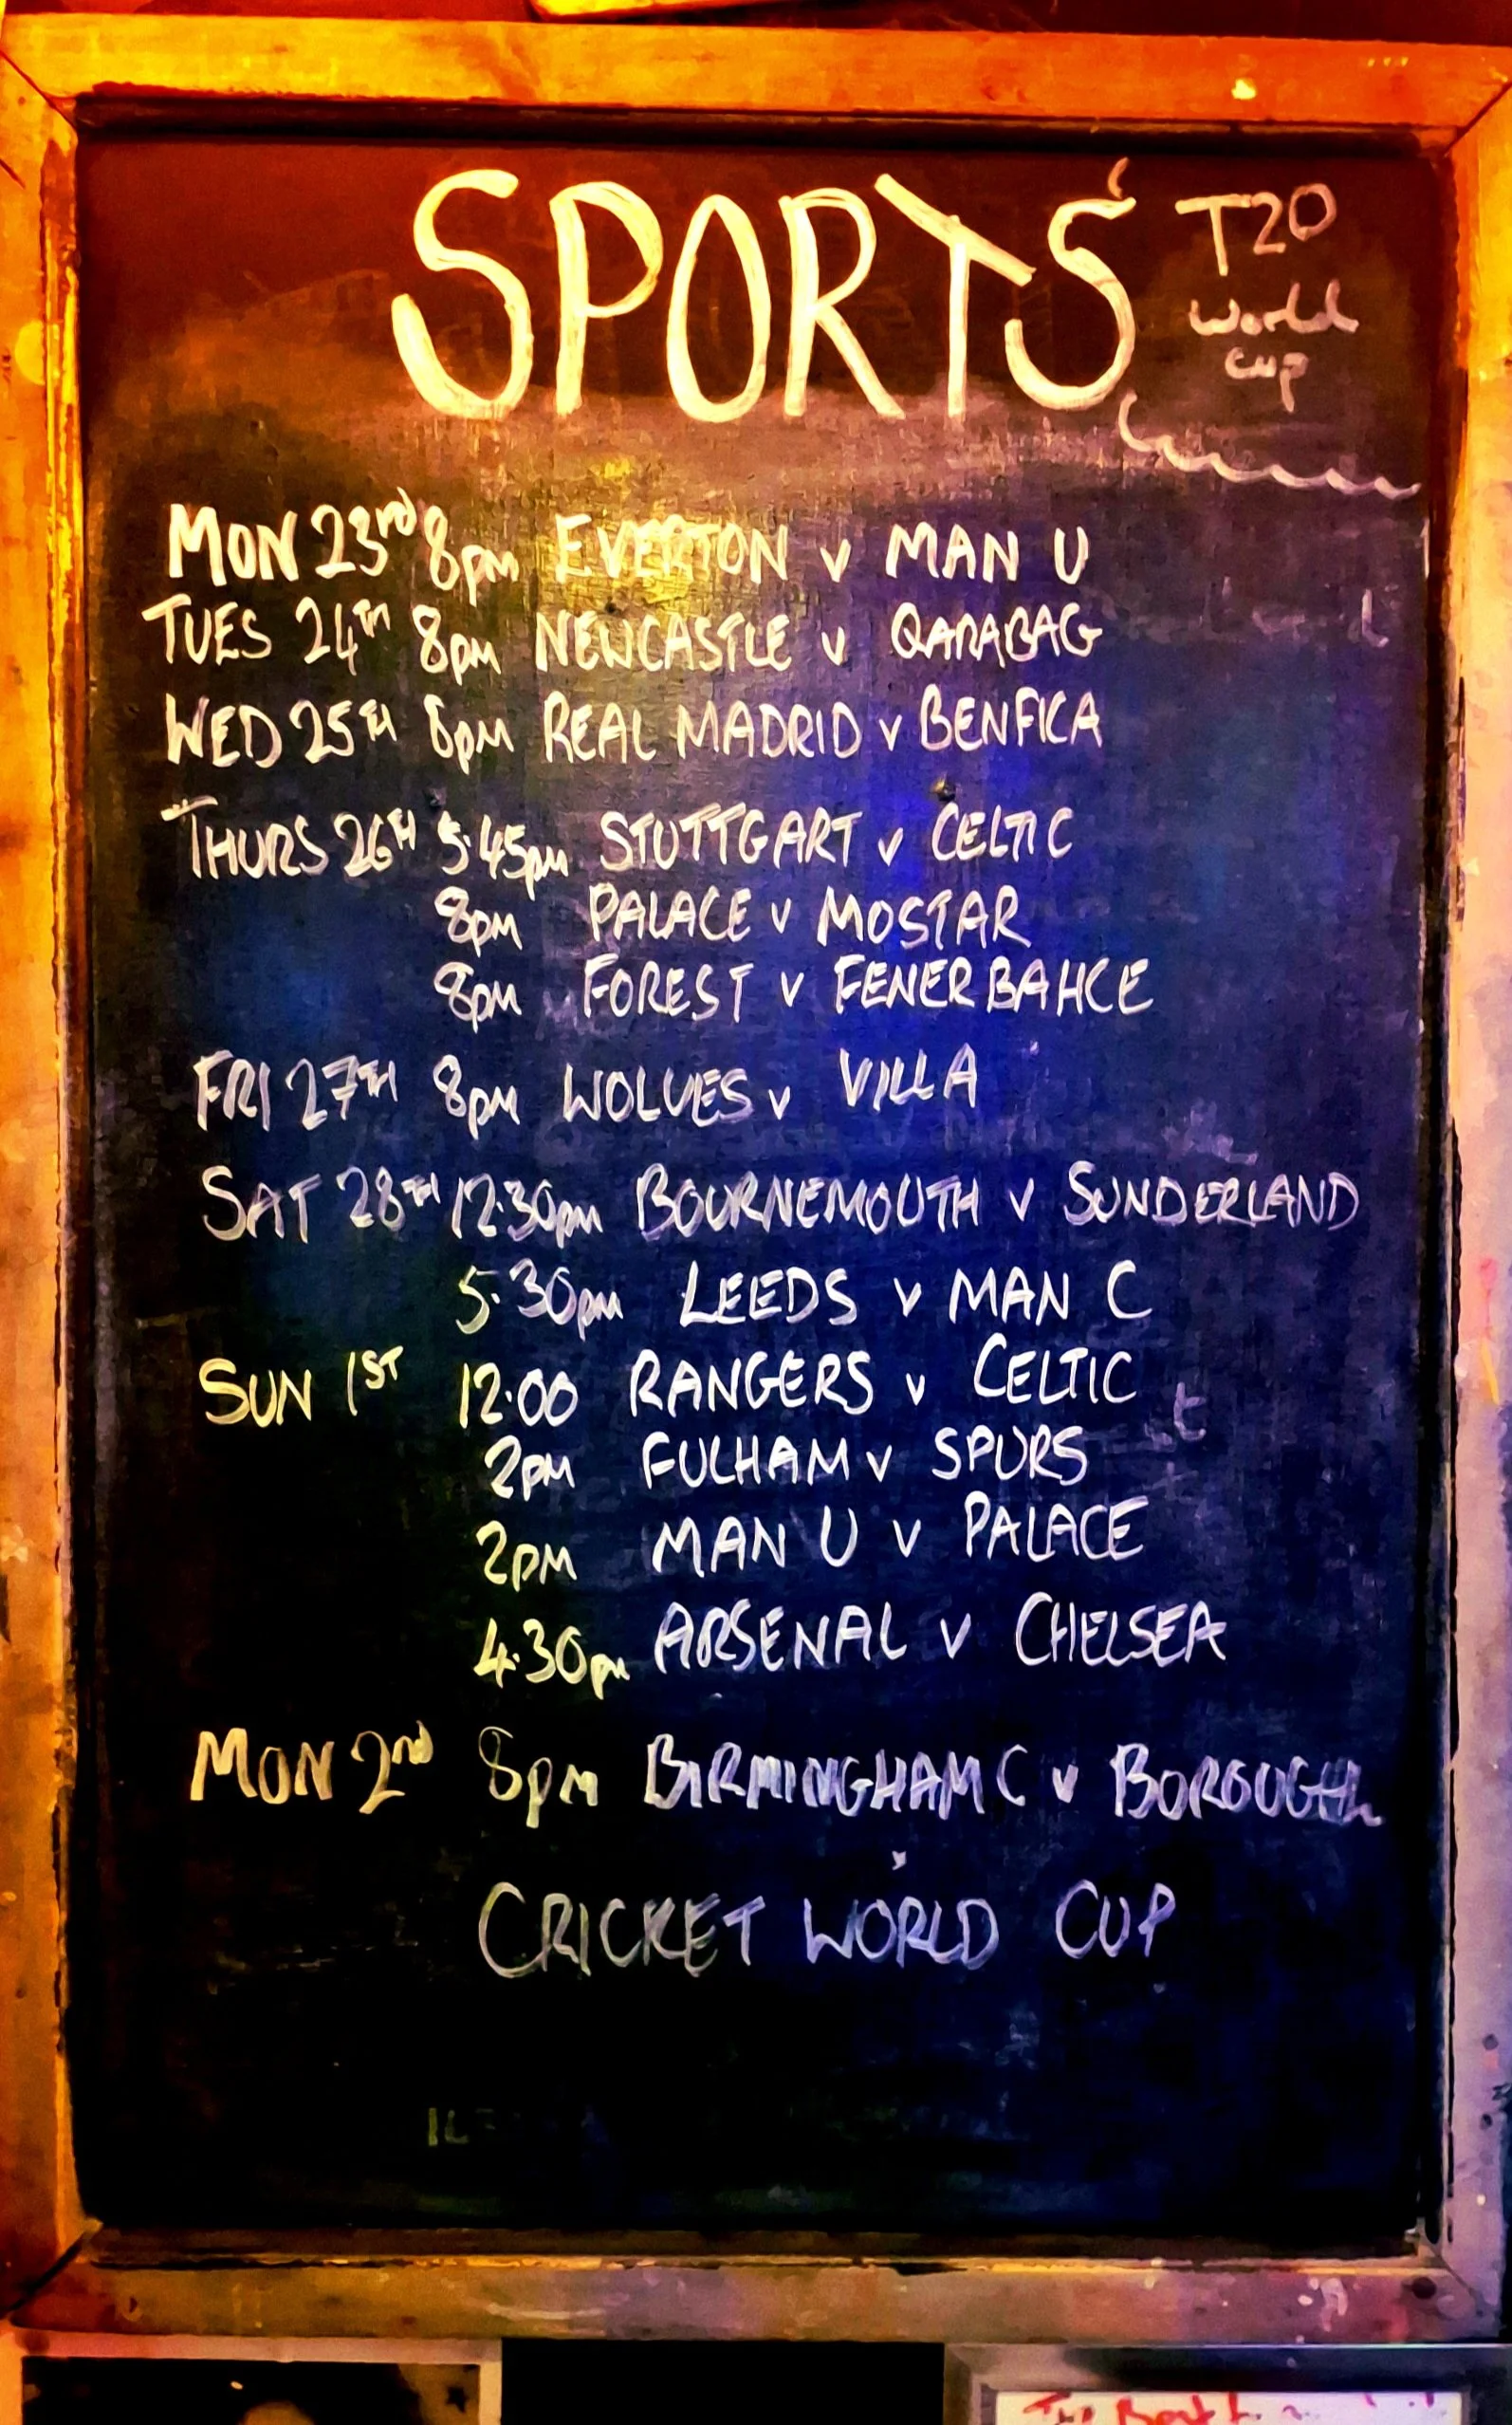 SPORTS
T20
World
Cup
MON 23rd 8pm EVERTON v MAN U
TUES 24TH 8pm NEWCASTLE v QARABAG
WED 25TH 8pm REAL MADRID v BENFICA
THURS 26TH 5.45pm STUTTGART v CELTIC
8pm PALACE v MOSTAR
8pm FOREST v FENERBAHCE
FRI 27TH 8pm WOLVES v VILLA
SAT 28TH 12.30pm BOURNEMOUTH v SUNDERLAND
5.30pm LEEDS v MAN C
SUN 1ST 12.00 RANGERS v CELTIC
2pm FULHAM v SPURS
2pm MAN U v PALACE
4.30pm ARSENAL v CHELSEA
MON 2nd 8pm BIRMINGHAM C v BOROUGH
CRICKET WORLD CUP